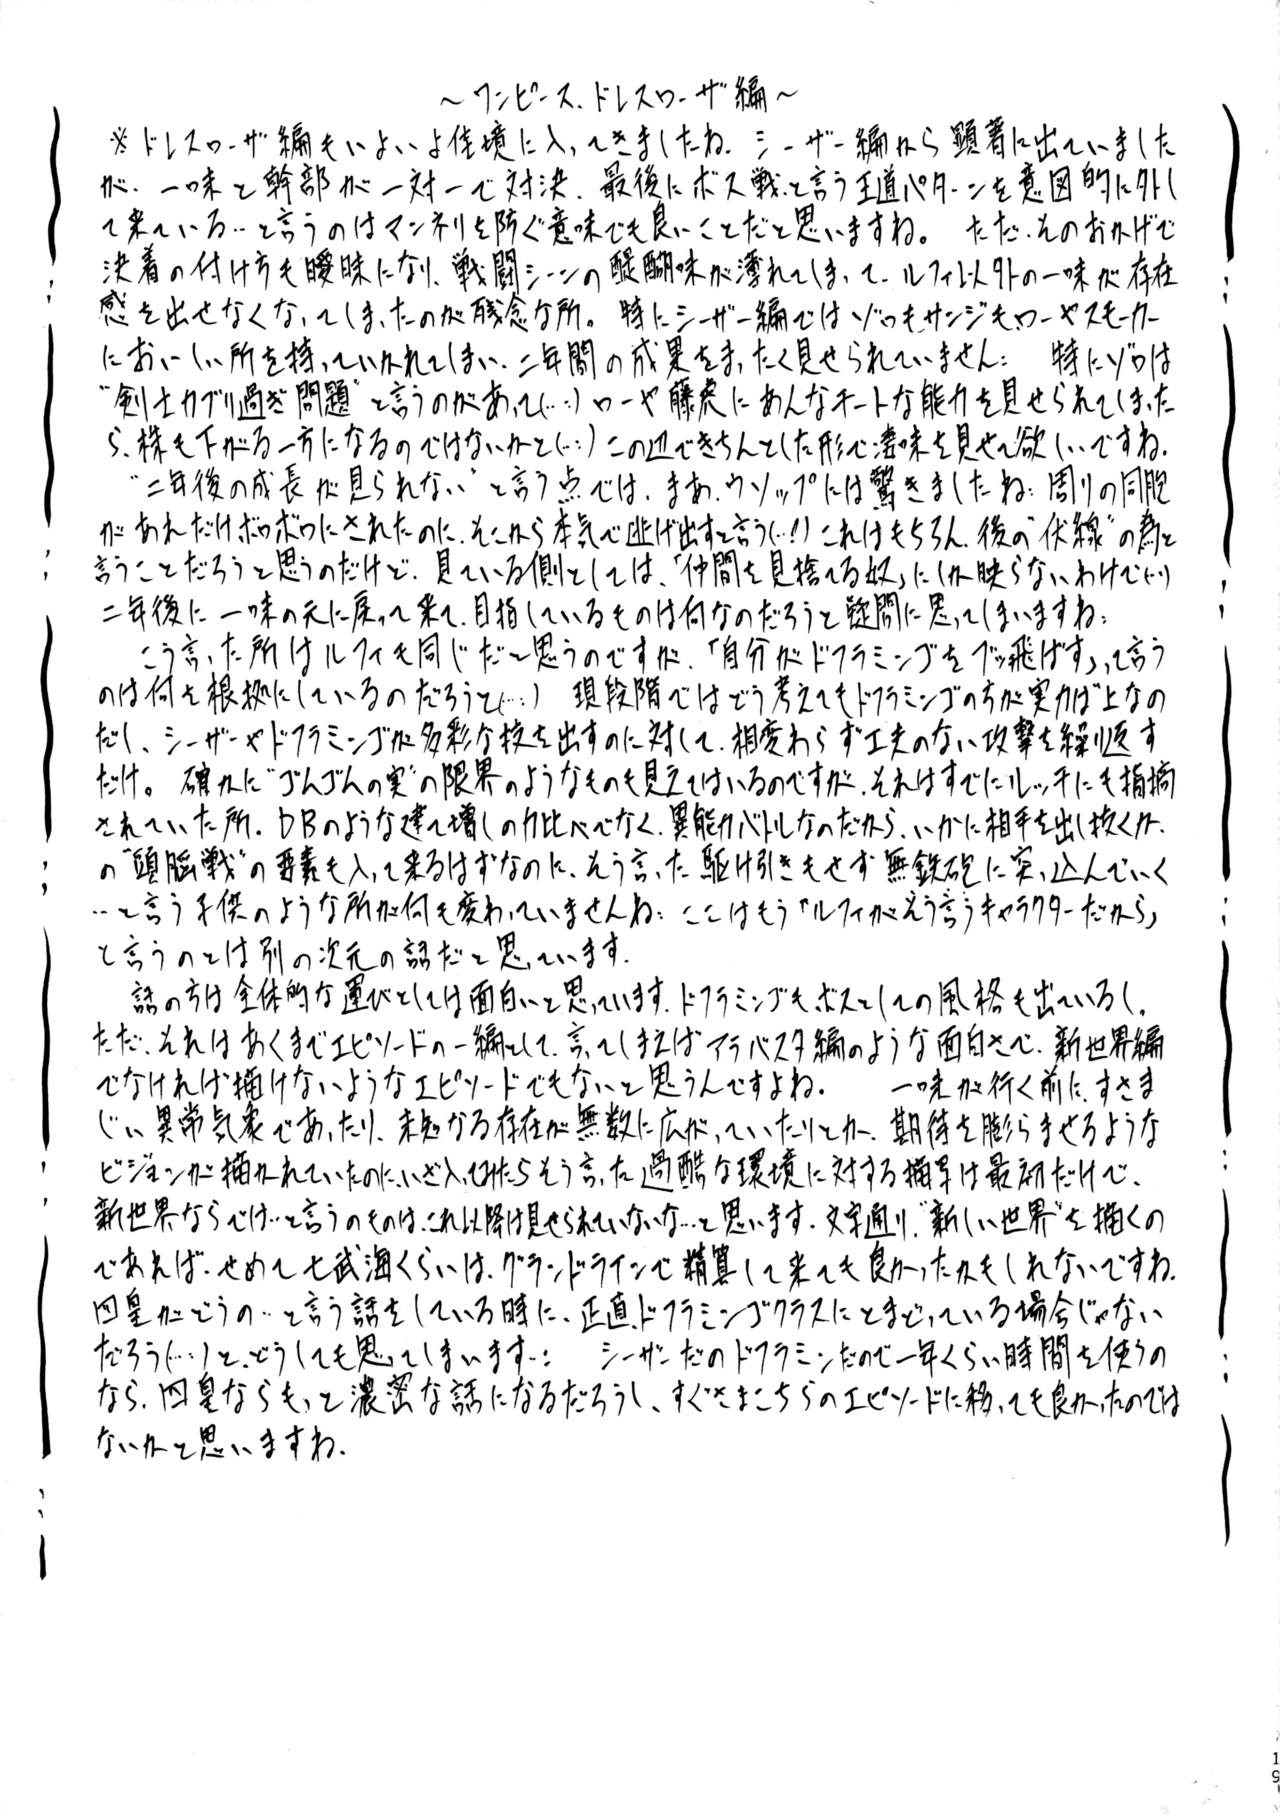 ～ワンピース.ドレスローザ編～
※ドレスローザ編もいよいよ佳境に入ってきましたね. シーザー編から顕著に出ていました
が. 一味と幹部が一対一で対決. 最後にボス戦.と言う王道パターンを意図的に外し
て来ている…と言うのはマンネリを防ぐ意味でも良いことだと思いますね。 ただ.そのおかげで
決着の付け方も曖昧になり、戦闘シーンの醍醐味が薄れてしまって. ルフィ以外の一味が存在
感を出せなくなってしまったのが残念な所。特にシーザー編ではゾロもサンジも.ローやスモーカー
においしい所を持っていかれてしまい.二年間の成果をまったく見せられていません: 特にゾロは
"剣士カブリ過ぎ問題"と言うのがあって(…:)ローや藤虎にあんなチートな能力を見せられてしまった
ら.株も下がる一方になるのではないかと(…:)この辺できちんとした形で凄味を見せて欲しいですね.
"二年後の成長が見られない"と言う点では. まあ.ウソップには驚きましたね: 周りの同胞
があれだけボロボロにされたのに.そこから本気で逃げ出すと言う(…!)これはもちろん.後の"伏線"の為と
言うことだろうと思うのだけど. 見ている側としては、「仲間を見捨てる奴」にしか映らないわけで(…)
二年後に一味の元に戻って来て.目指しているものは何なのだろうと疑問に思ってしまいますね:
こう言った所はルフィも同じだと思うのですが.「自分がドフラミンゴをブッ飛ばす」って言う
のは何を根拠にしているのだろうと(…:) 現段階ではどう考えてもドフラミンゴの方が実力が上なの
だし、シーザーやドフラミンゴが多彩な技を出すのに対して.相変わらず工夫のない攻撃を繰り返す
だけ。確かに"ゴムゴムの実"の限界のようなものも見えてはいるのですが.それはすでにルッチにも指摘
されていた所。DBのような建て増しの力比べでなく.異能力バトルなのだから、いかに相手を出し抜くか.
の"頭脳戦"の要素も入って来るはずなのに.そう言った駆け引きもせず無鉄砲に突っ込んでいく
…と言う子供のような所が何も変わっていませんね: ここはもう「ルフィがそう言うキャラクターだから」
と言うのとは別の次元の話だと思っています.
話の方は全体的な運びとしては面白いと思っています.ドフラミンゴもボスとしての風格も出ているし。
ただ.それはあくまでエピソードの一編として.言ってしまえばアラバスタ編のような面白さで.新世界編
でなければ描けないようなエピソードでもないと思うんですよね. 一味が行く前に.すさま
じい異常気象であったり.未知なる存在が無数に広がっていたりとか.期待を膨らませるような
ビジョンが描かれていたのに.いざ入ってみたらそう言った過酷な環境に対する描写は最初だけで、
新世界ならでは…と言うのものは.これ以降は見せられていないな…と思います.文字通り."新しい世界"を描くの
であれば.せめて七武海くらいは.グランドラインで精算して来ても良かったかもしれないですね.
四皇がどうの…と言う話をしている時に、正直.ドフラミンゴクラスにとまどっている場合じゃない
だろう(…)と.どうしても思ってしまいます…: シーザーだのドフラミンだので一年くらい時間を使うの
なら.四皇ならもっと濃密な話になるだろうし、すぐさまこちらのエピソードに移っても良かったのでは
ないかと思いますね.
19